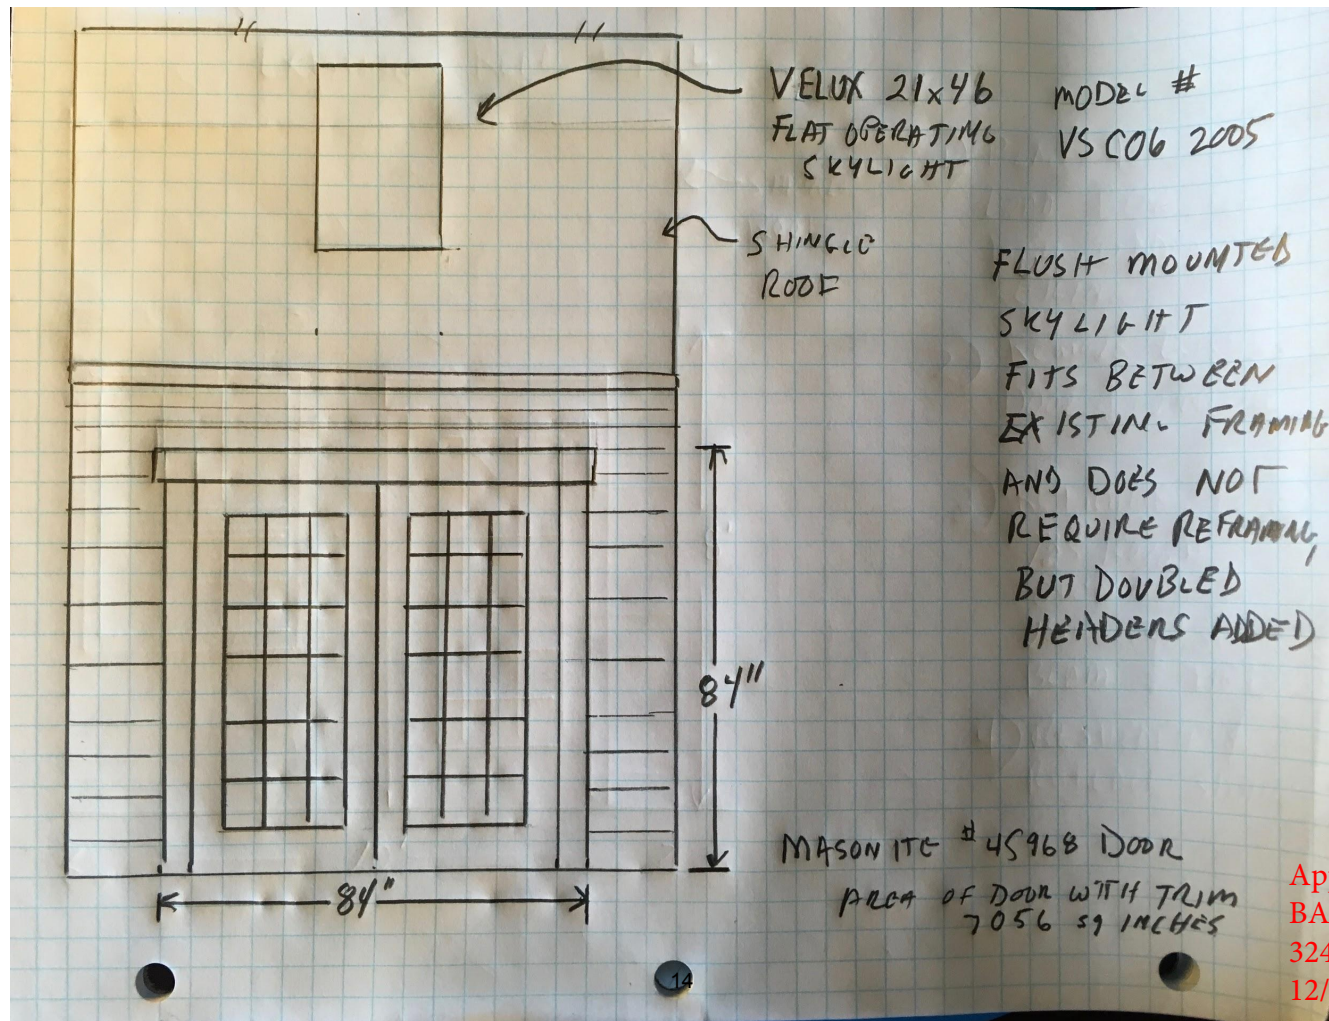 VELUX 21x46
FLAT OPERATING
SKYLIGHT
MODEL #
VS C06 2005
SHINGLE
ROOF
FLUSH MOUNTED
SKYLIGHT
FITS BETWEEN
EXISTING FRAMING
AND DOES NOT
REQUIRE REFRAMING,
BUT DOUBLED
HEADERS ADDED
84"
84"
MASONITE #45968 DOOR
AREA OF DOOR WITH TRIM
7056 SQ INCHES
Ap
BA
324
12/
14